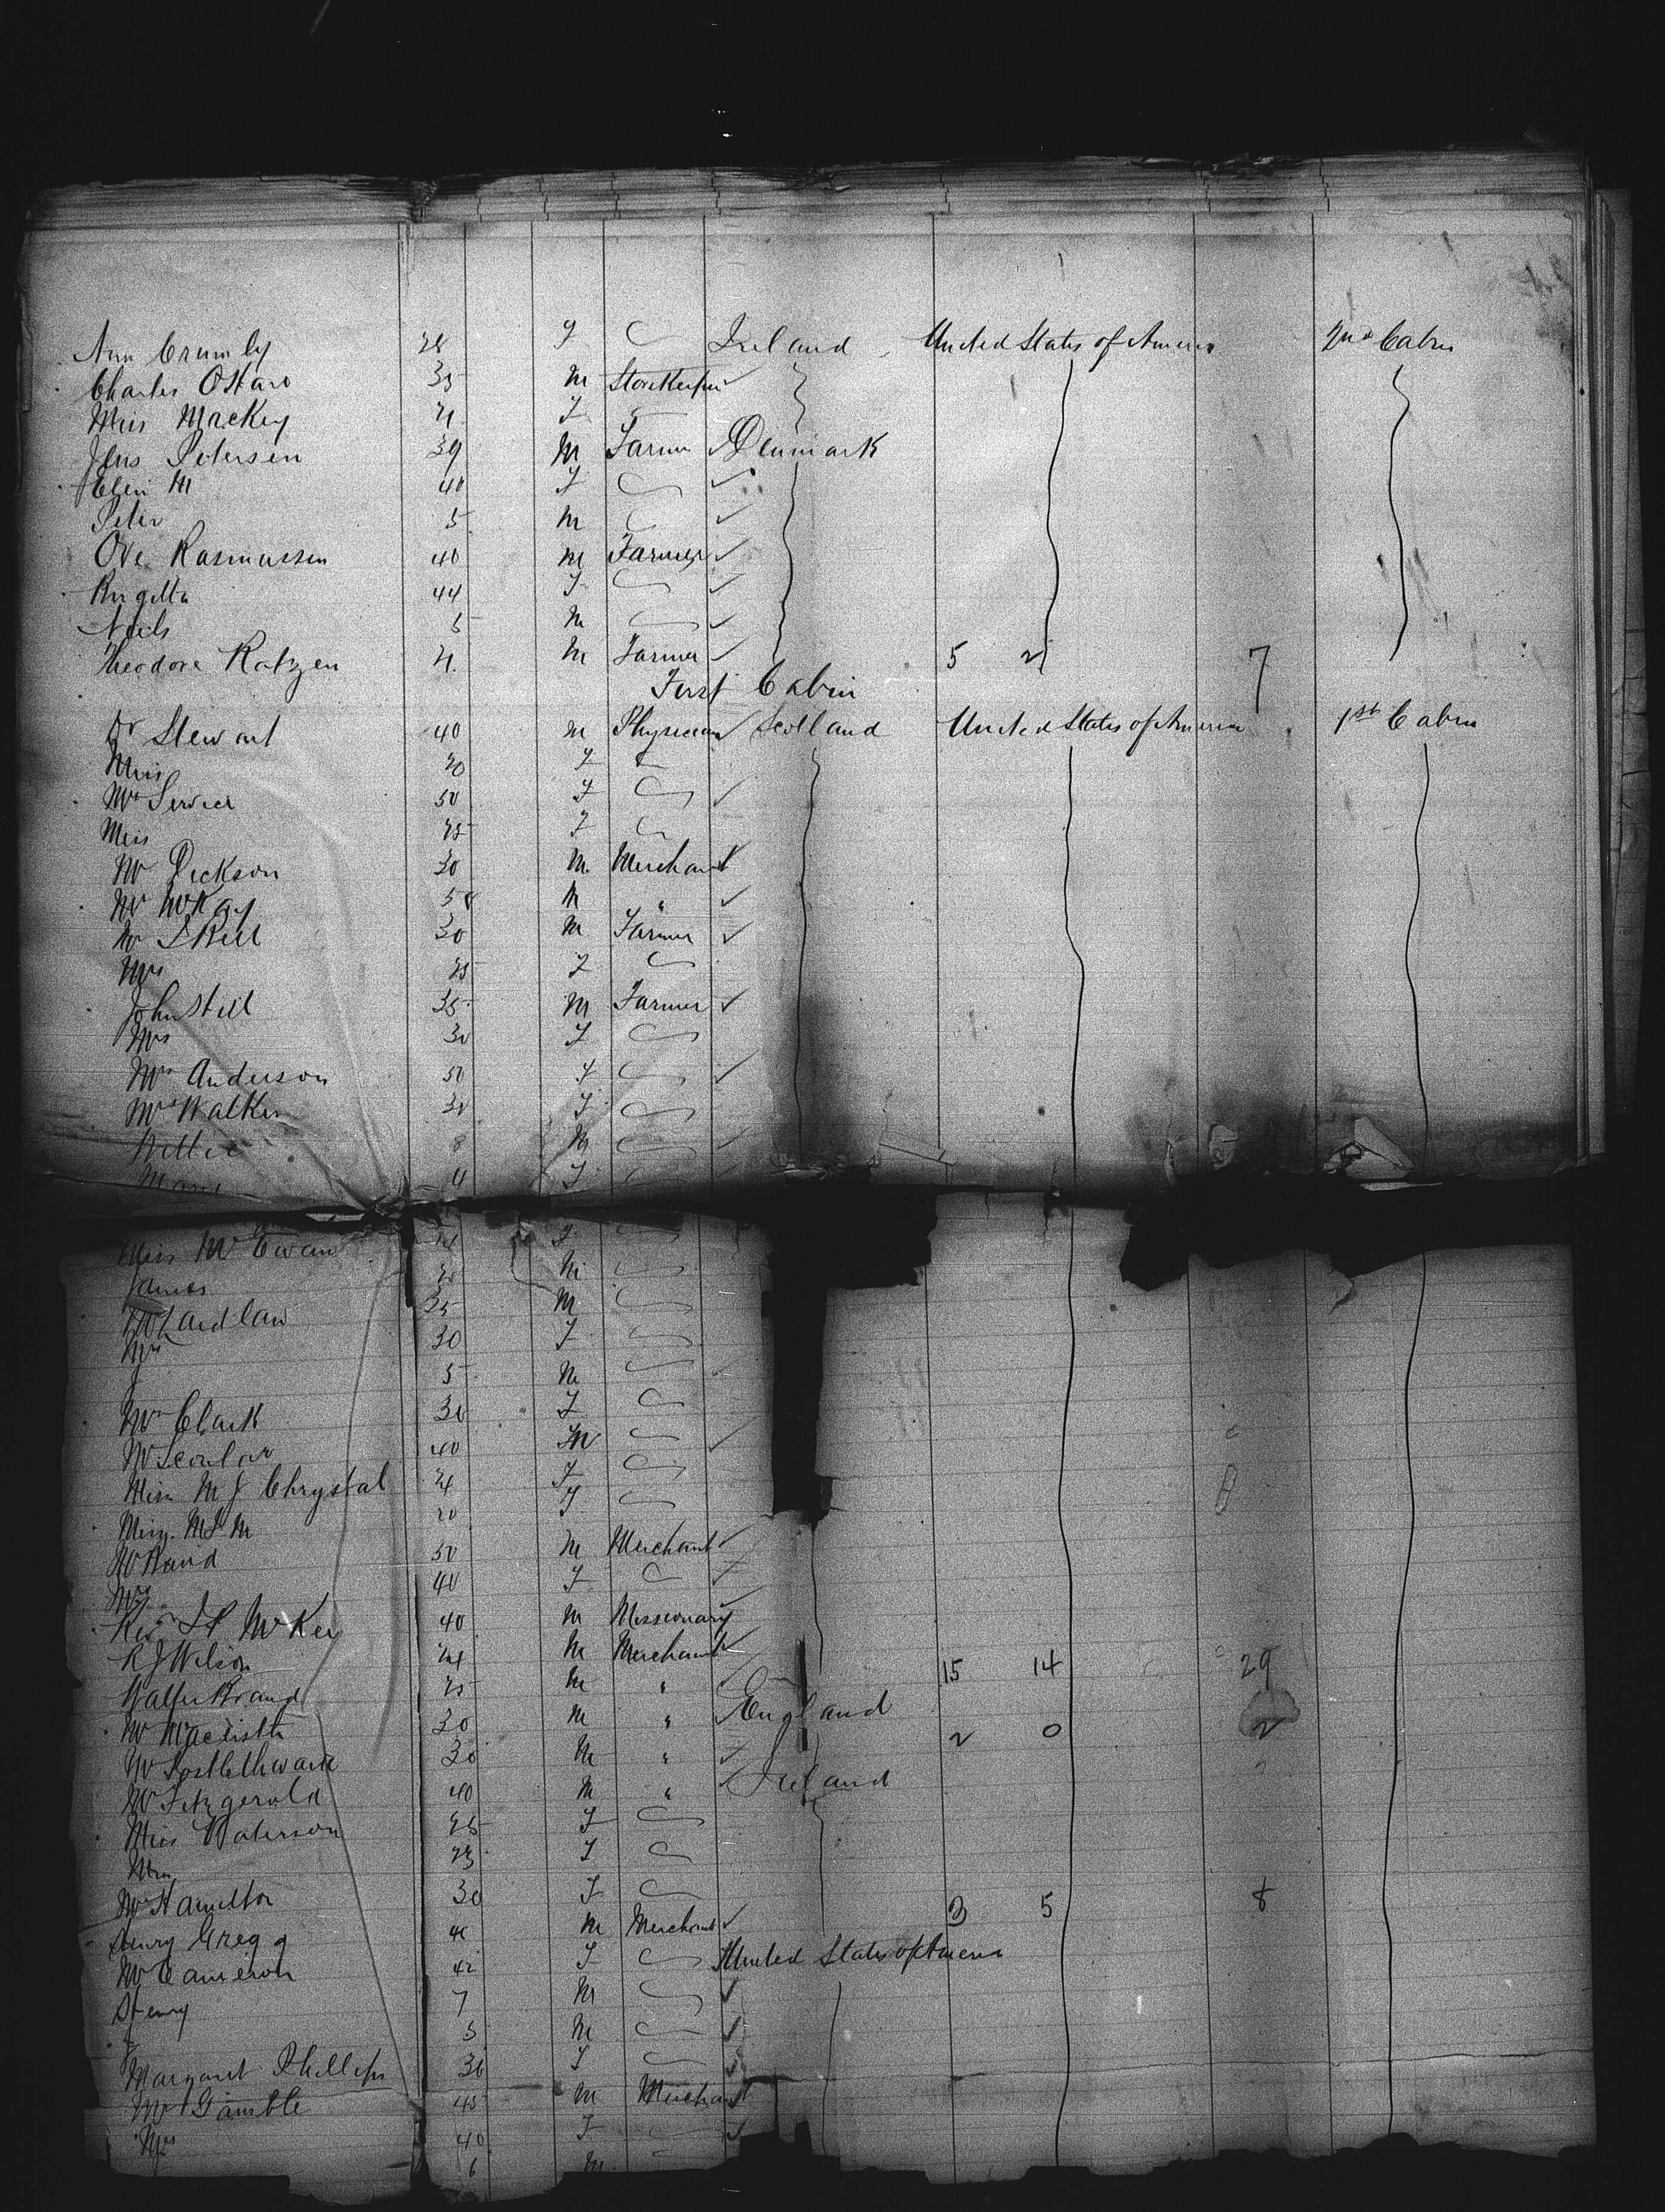 Ann Crumly 28 F Ireland United States of America 2nd Cabin
Charles O'Haro 35 M Storekeeper
Miss Mackey 21 F
Jens Petersen 39 M Farmer Denmark
Elen M 40 F
Peter 5 M
Ove Rasmussen 40 M Farmer
44 F
Neils M
Theodore Ratzen 21 M Farmer 5 2 7
First Cabin
Dr Stewart 40 M Physician Scotland United States of America 1st Cabin
Miss 20 F
Mrs Service 50 F
Miss 25 F
Mr Dickson 30 M Merchant
Mr McKay 58 M "
Mr 30 M Farmer
Mrs 25 F
John 35 M Farmer
Mrs 30 F
Mrs Anderson 50 F
Mrs Walker 30 F
Willie 8 M
4 F
Miss McEwan F
James M
Mr Laidlaw 35 M
Mrs 30 F
J 5 M
Mrs Clark 30 F
Mr Scoular 40 M
Miss M J Chrystal 24 F
Miss 20 F
Mr 50 M Merchant
Mrs 40 F
Rev McKee 40 M Missionary
R J Wilson 24 M Merchant 15 14 29
Walter Brand 25 M "
Mr 30 M " England 2 0 2
Mr Postlethwaite 30 M "
Mr Fitzgerald 40 M " Ireland
Miss Waterson 26 F
Miss 23 F
Mrs Hamilton 30 F 3 5 8
Henry Gregg M Merchant
Mrs Cameron 42 F United States of America
Henry 7 M
5 M
Margaret Phillips 36 F
Mr Gamble 45 M Merchant
Mrs 40 F
6 M